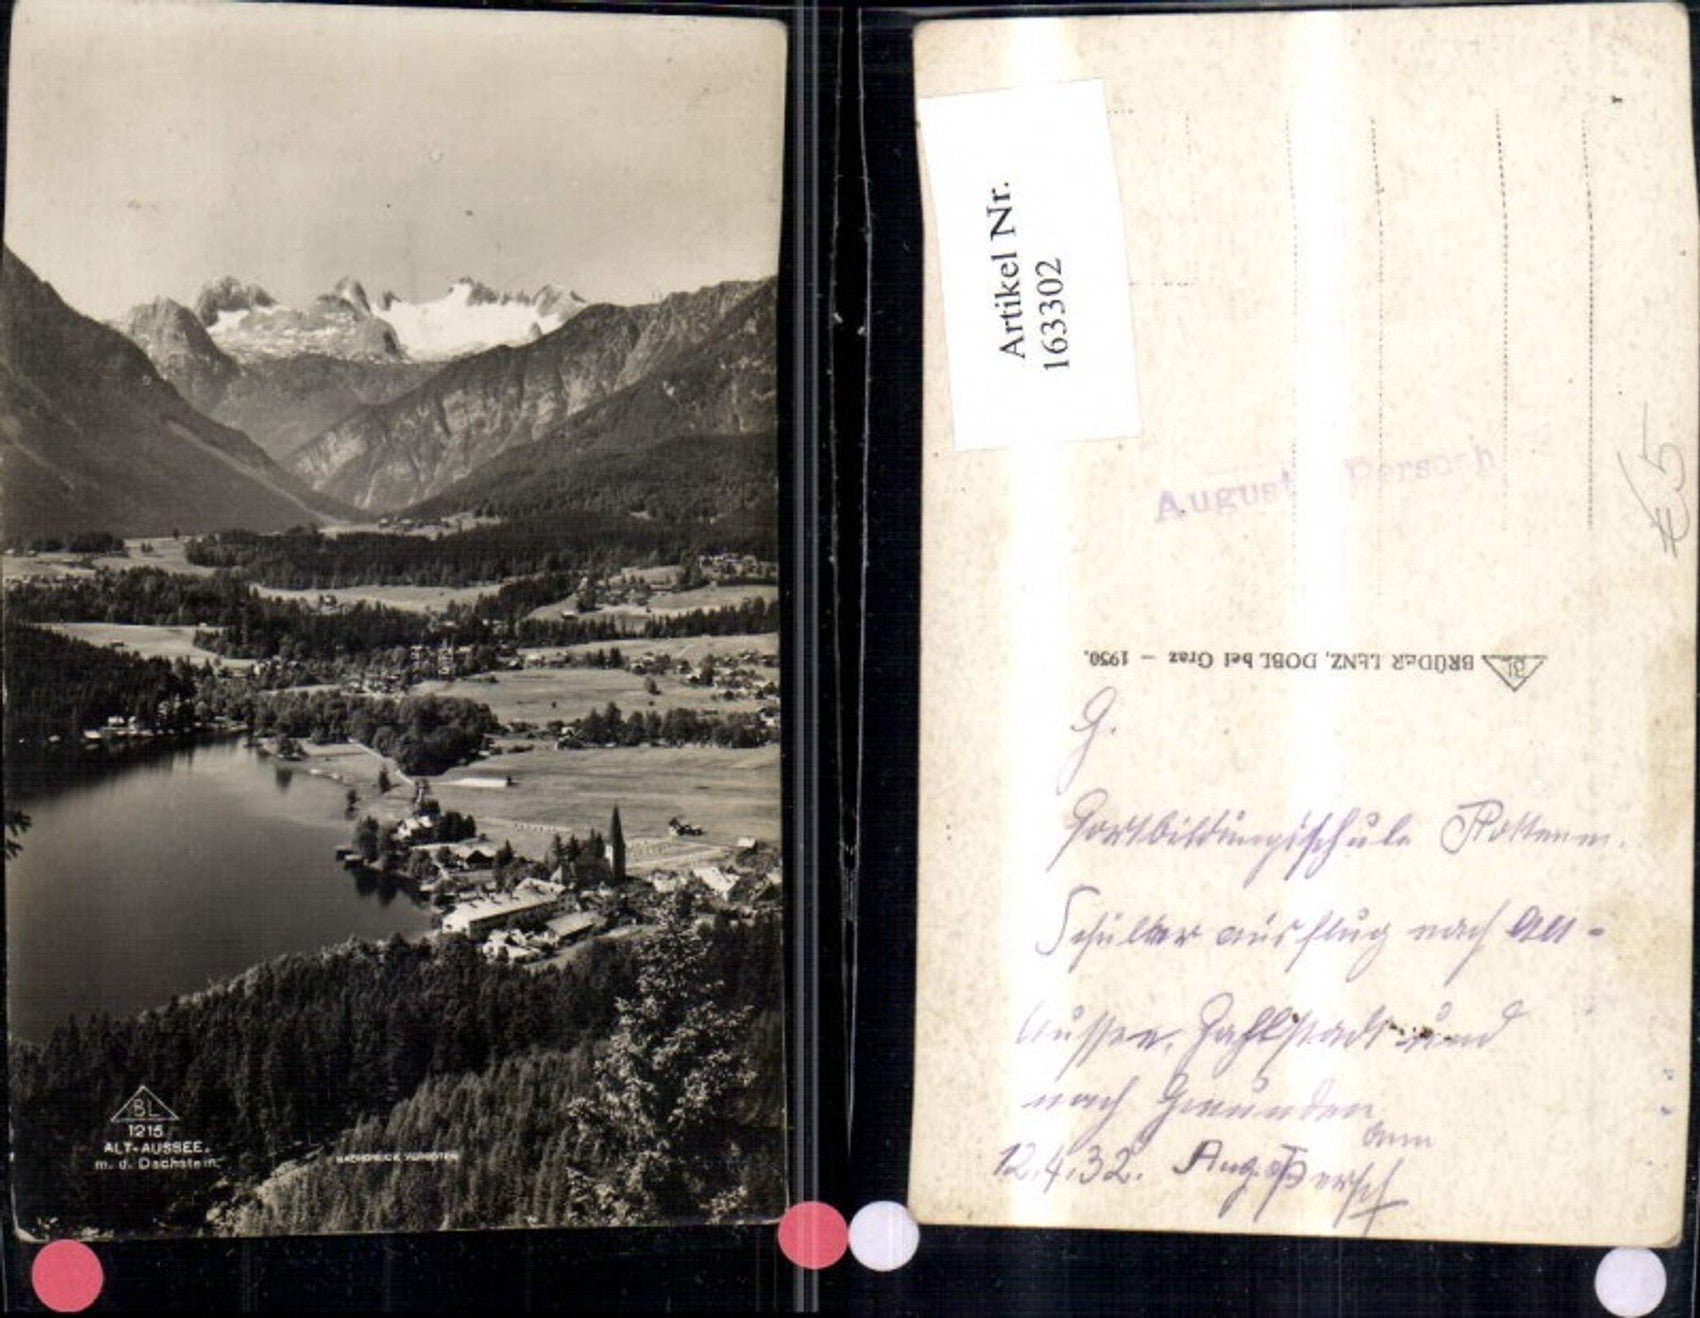 BL
1215
ALT-AUSSEE.
m. d. Dachstein.
NACHDRUCK VERBOTEN
Artikel Nr.
163302
August Persch
€5
BL BRÜDER LENZ, DOBL bei Graz – 1930.
G.
Fortbildungsschule Rottenm.
Schüler ausflug nach Alt-
Aussee, Hallstadt und
nach Gmunden
am
12.4.32. Aug. Persch